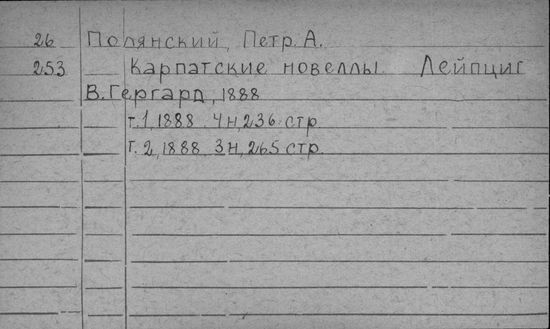 26 Полянский, Петр. А.
253 Карпатские новеллы. Лейпциг
В. Гергард, 1888
т. 1, 1888. 4н, 236 стр
т. 2, 1888. 3н, 265 стр.